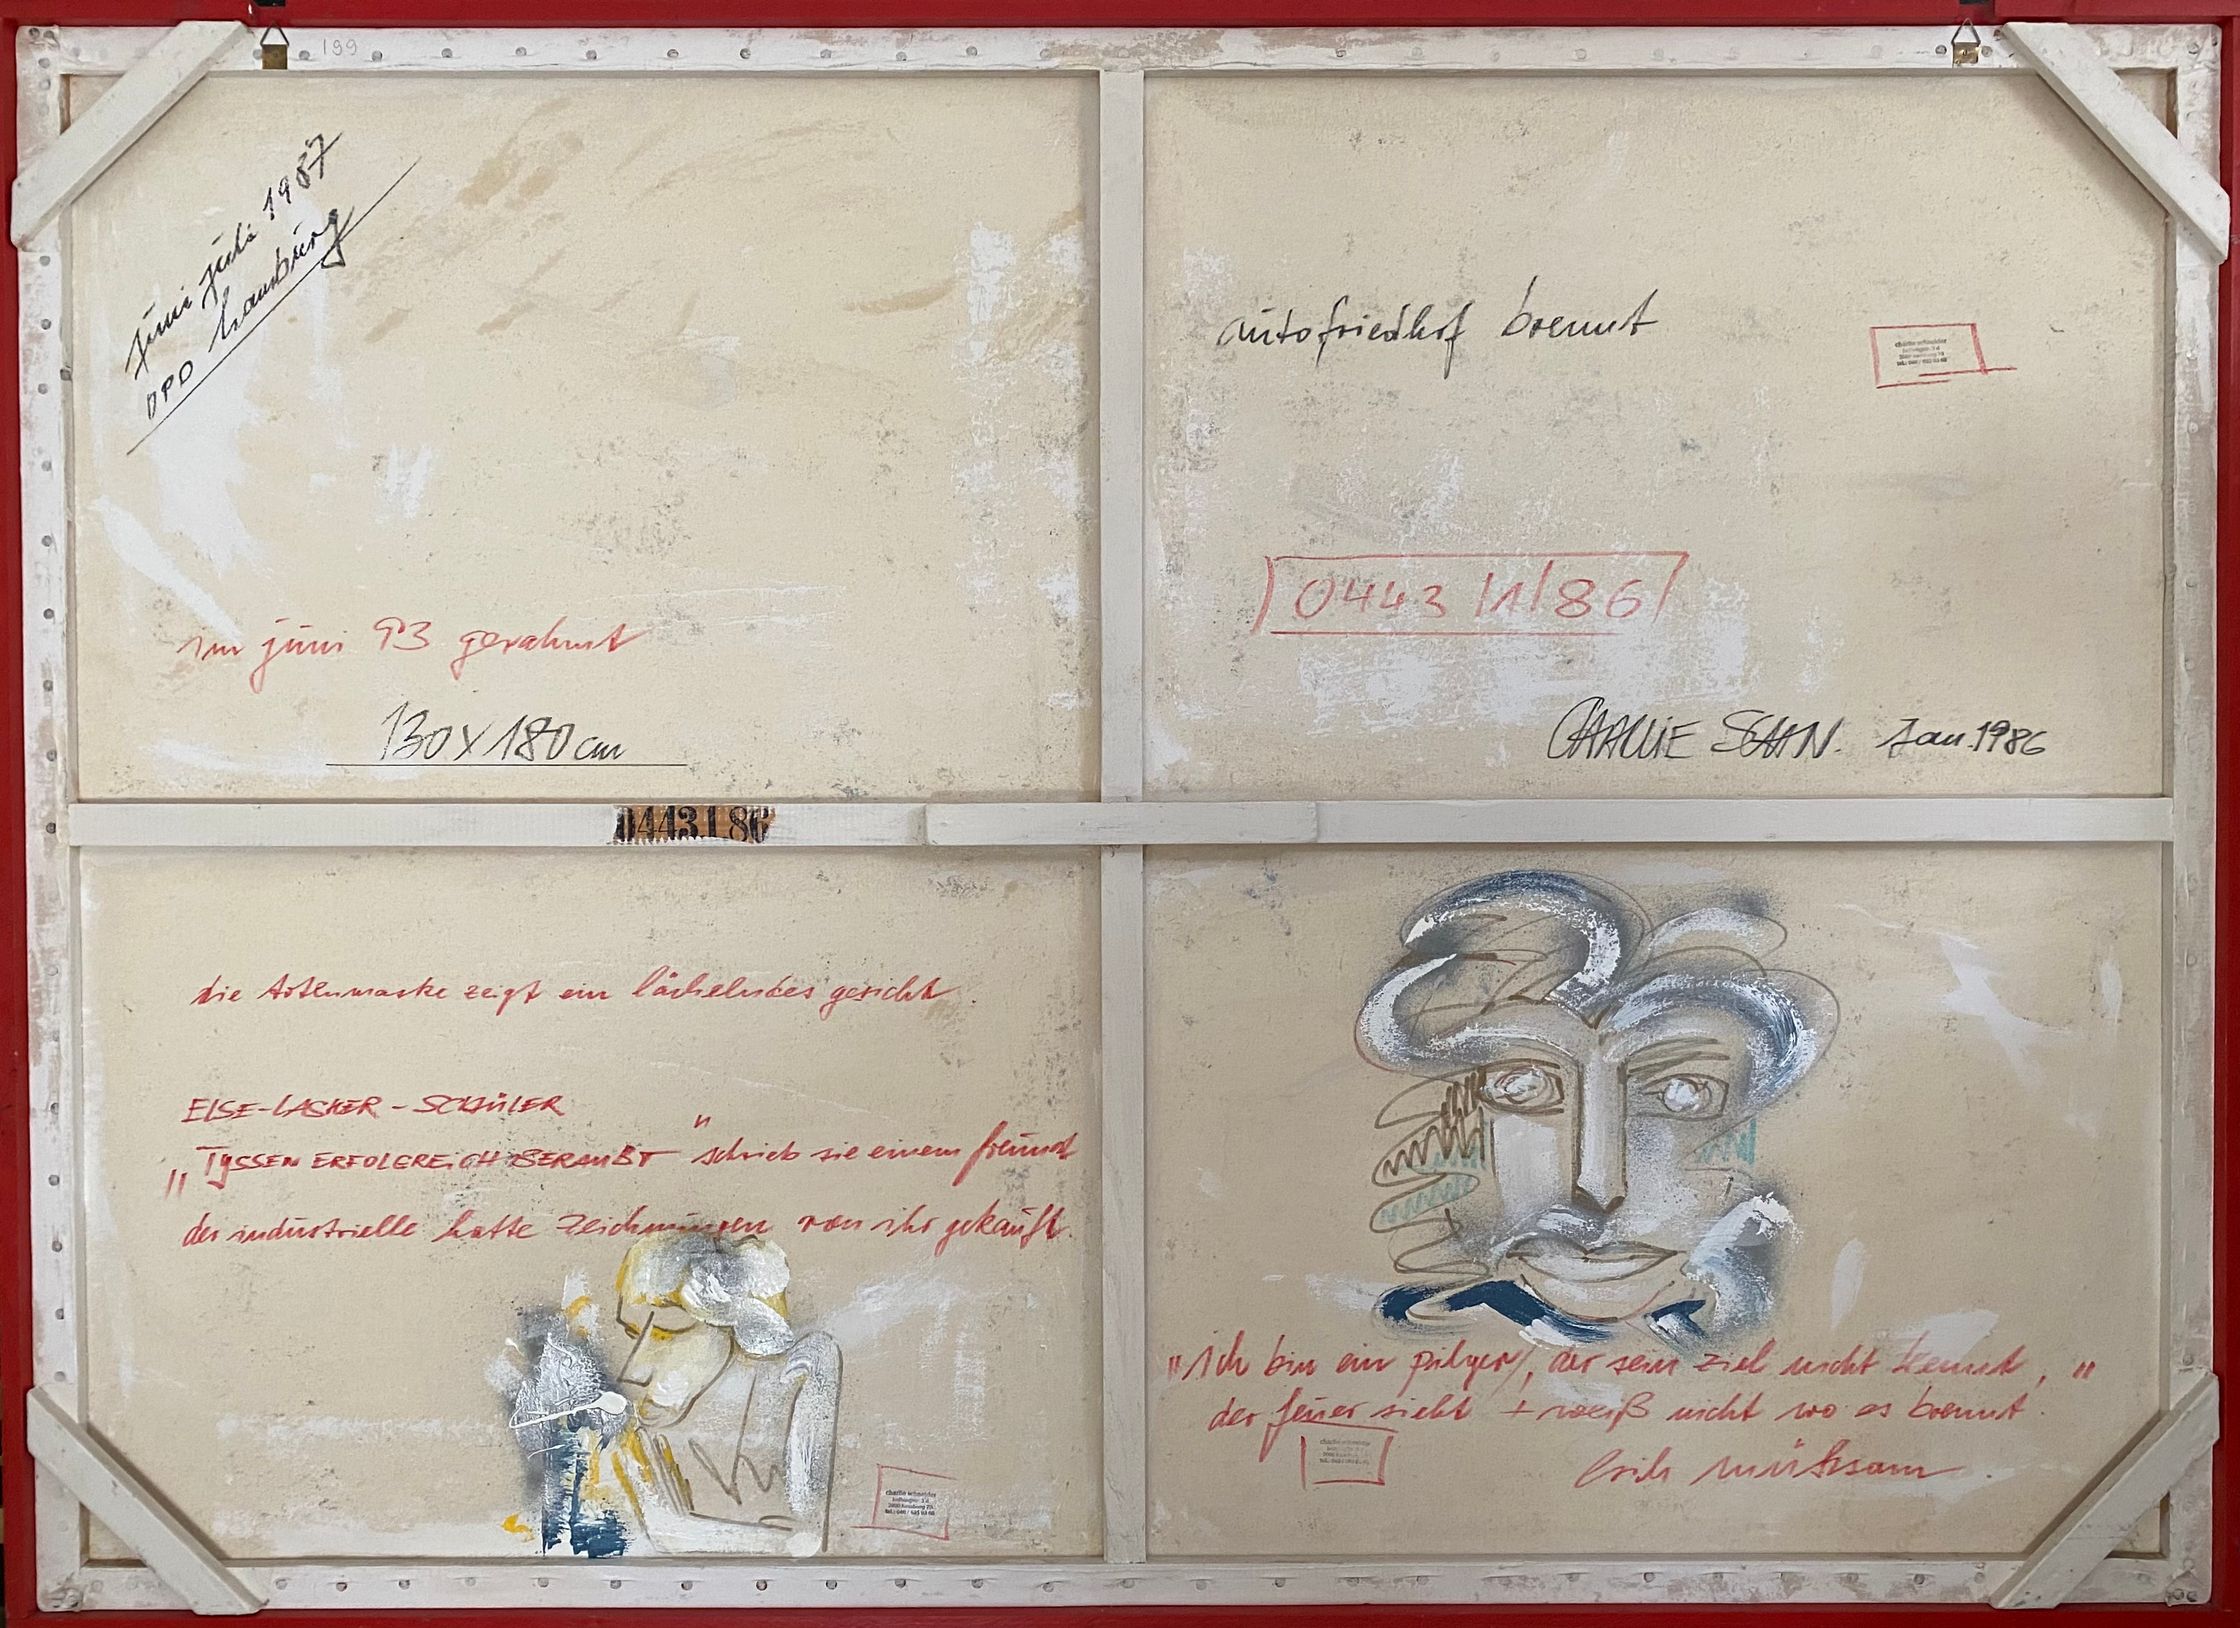 199
juni juli 1987
OPD hamburg
autofriedhof brennt
charlie schneider
im juni 93 gerahmt
0443/1/86
130 x 180 cm
CHARLIE SCHN. Jan. 1986
0443.1 86
die totenmaske zeigt ein lächelndes gesicht.
ELSE-LASKER-SCHÜLER
„TYSSEN ERFOLGREICH BERAUBT" schrieb sie einem freund
der industrielle hatte zeichnungen von ihr gekauft.
charlie schneider
"ich bin ein pilger, der sein ziel nicht kennt,"
der feuer sieht + weiß nicht wo es brennt.
charlie schneider
erich mühsam.